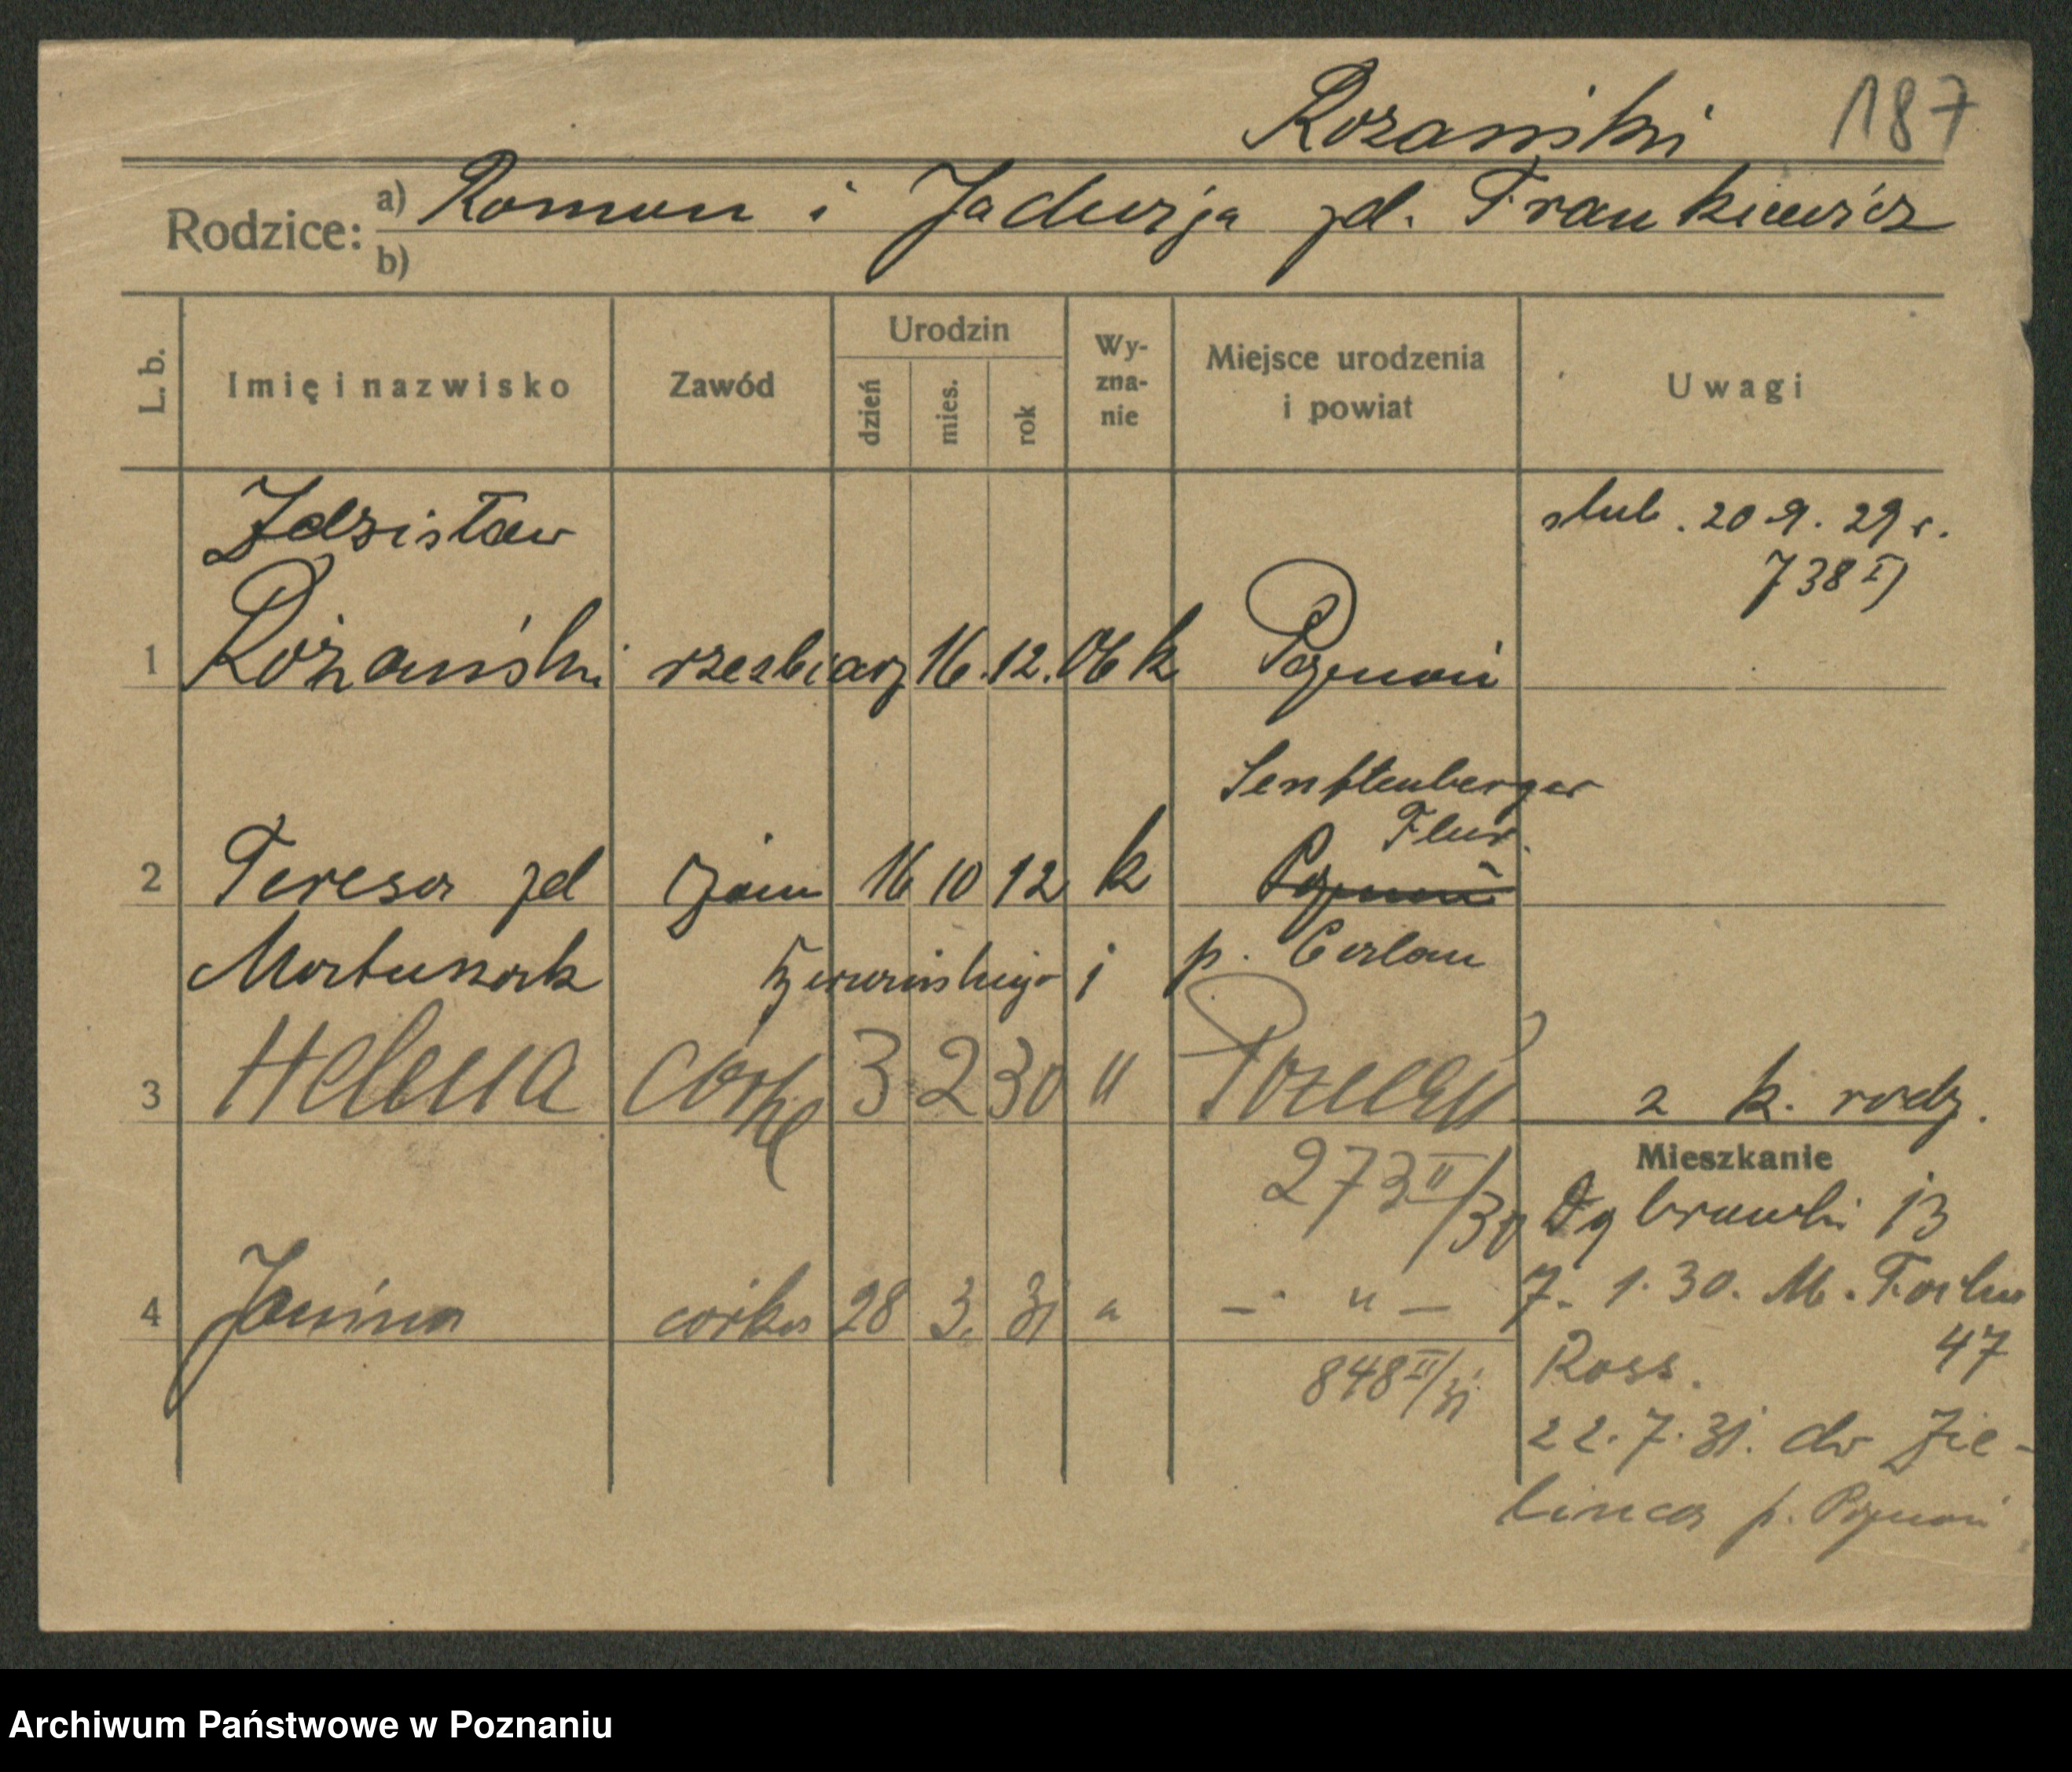 Rozanski 187
Rodzice: a) Roman i Jadwiga zd. Frankiewicz
b)
L. b. Imię i nazwisko Zawód Urodzin dzień mies. rok Wy-zna-nie Miejsce urodzenia i powiat Uwagi
Zdzisław ślub. 20.9.29 r.
738 II)
1 Różański rzeźbiarz 16. 12. 06 k Poznań
Senftenberger
Flur.
2 Teresa zd żona 16 10 12 k Poznań
Martuzark p. Calau
3 Helena córka 3 2 30 " Poznań 2 k. rodz.
Mieszkanie
273 II/30 Dąbrowski 13
4 Janina córka 28 3. 31 " — " — 7. 1. 30. M. Focha
47
848 II/31 Ross.
22.7.31. do Zie-
linca p. Poznań
Archiwum Państwowe w Poznaniu